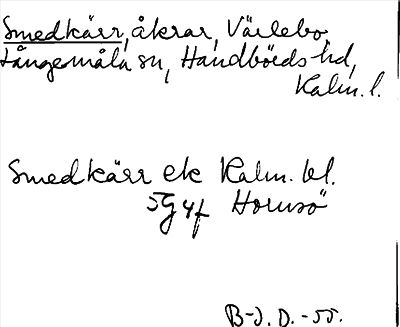 Smedkärr, åkrar, Värlebo,
Långemåla sn, Handbörds hd,
Kalm. l.
Smedkärr ek Kalm. bl.
5G 4f Hornsö
B-J. D. -55.